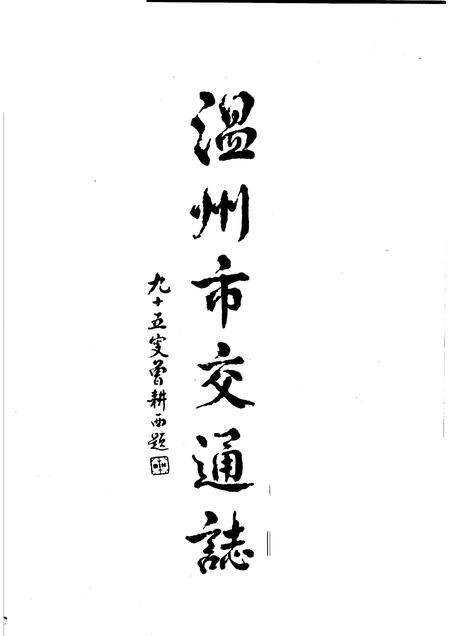 温州市交通誌
九十五叟曾耕西題